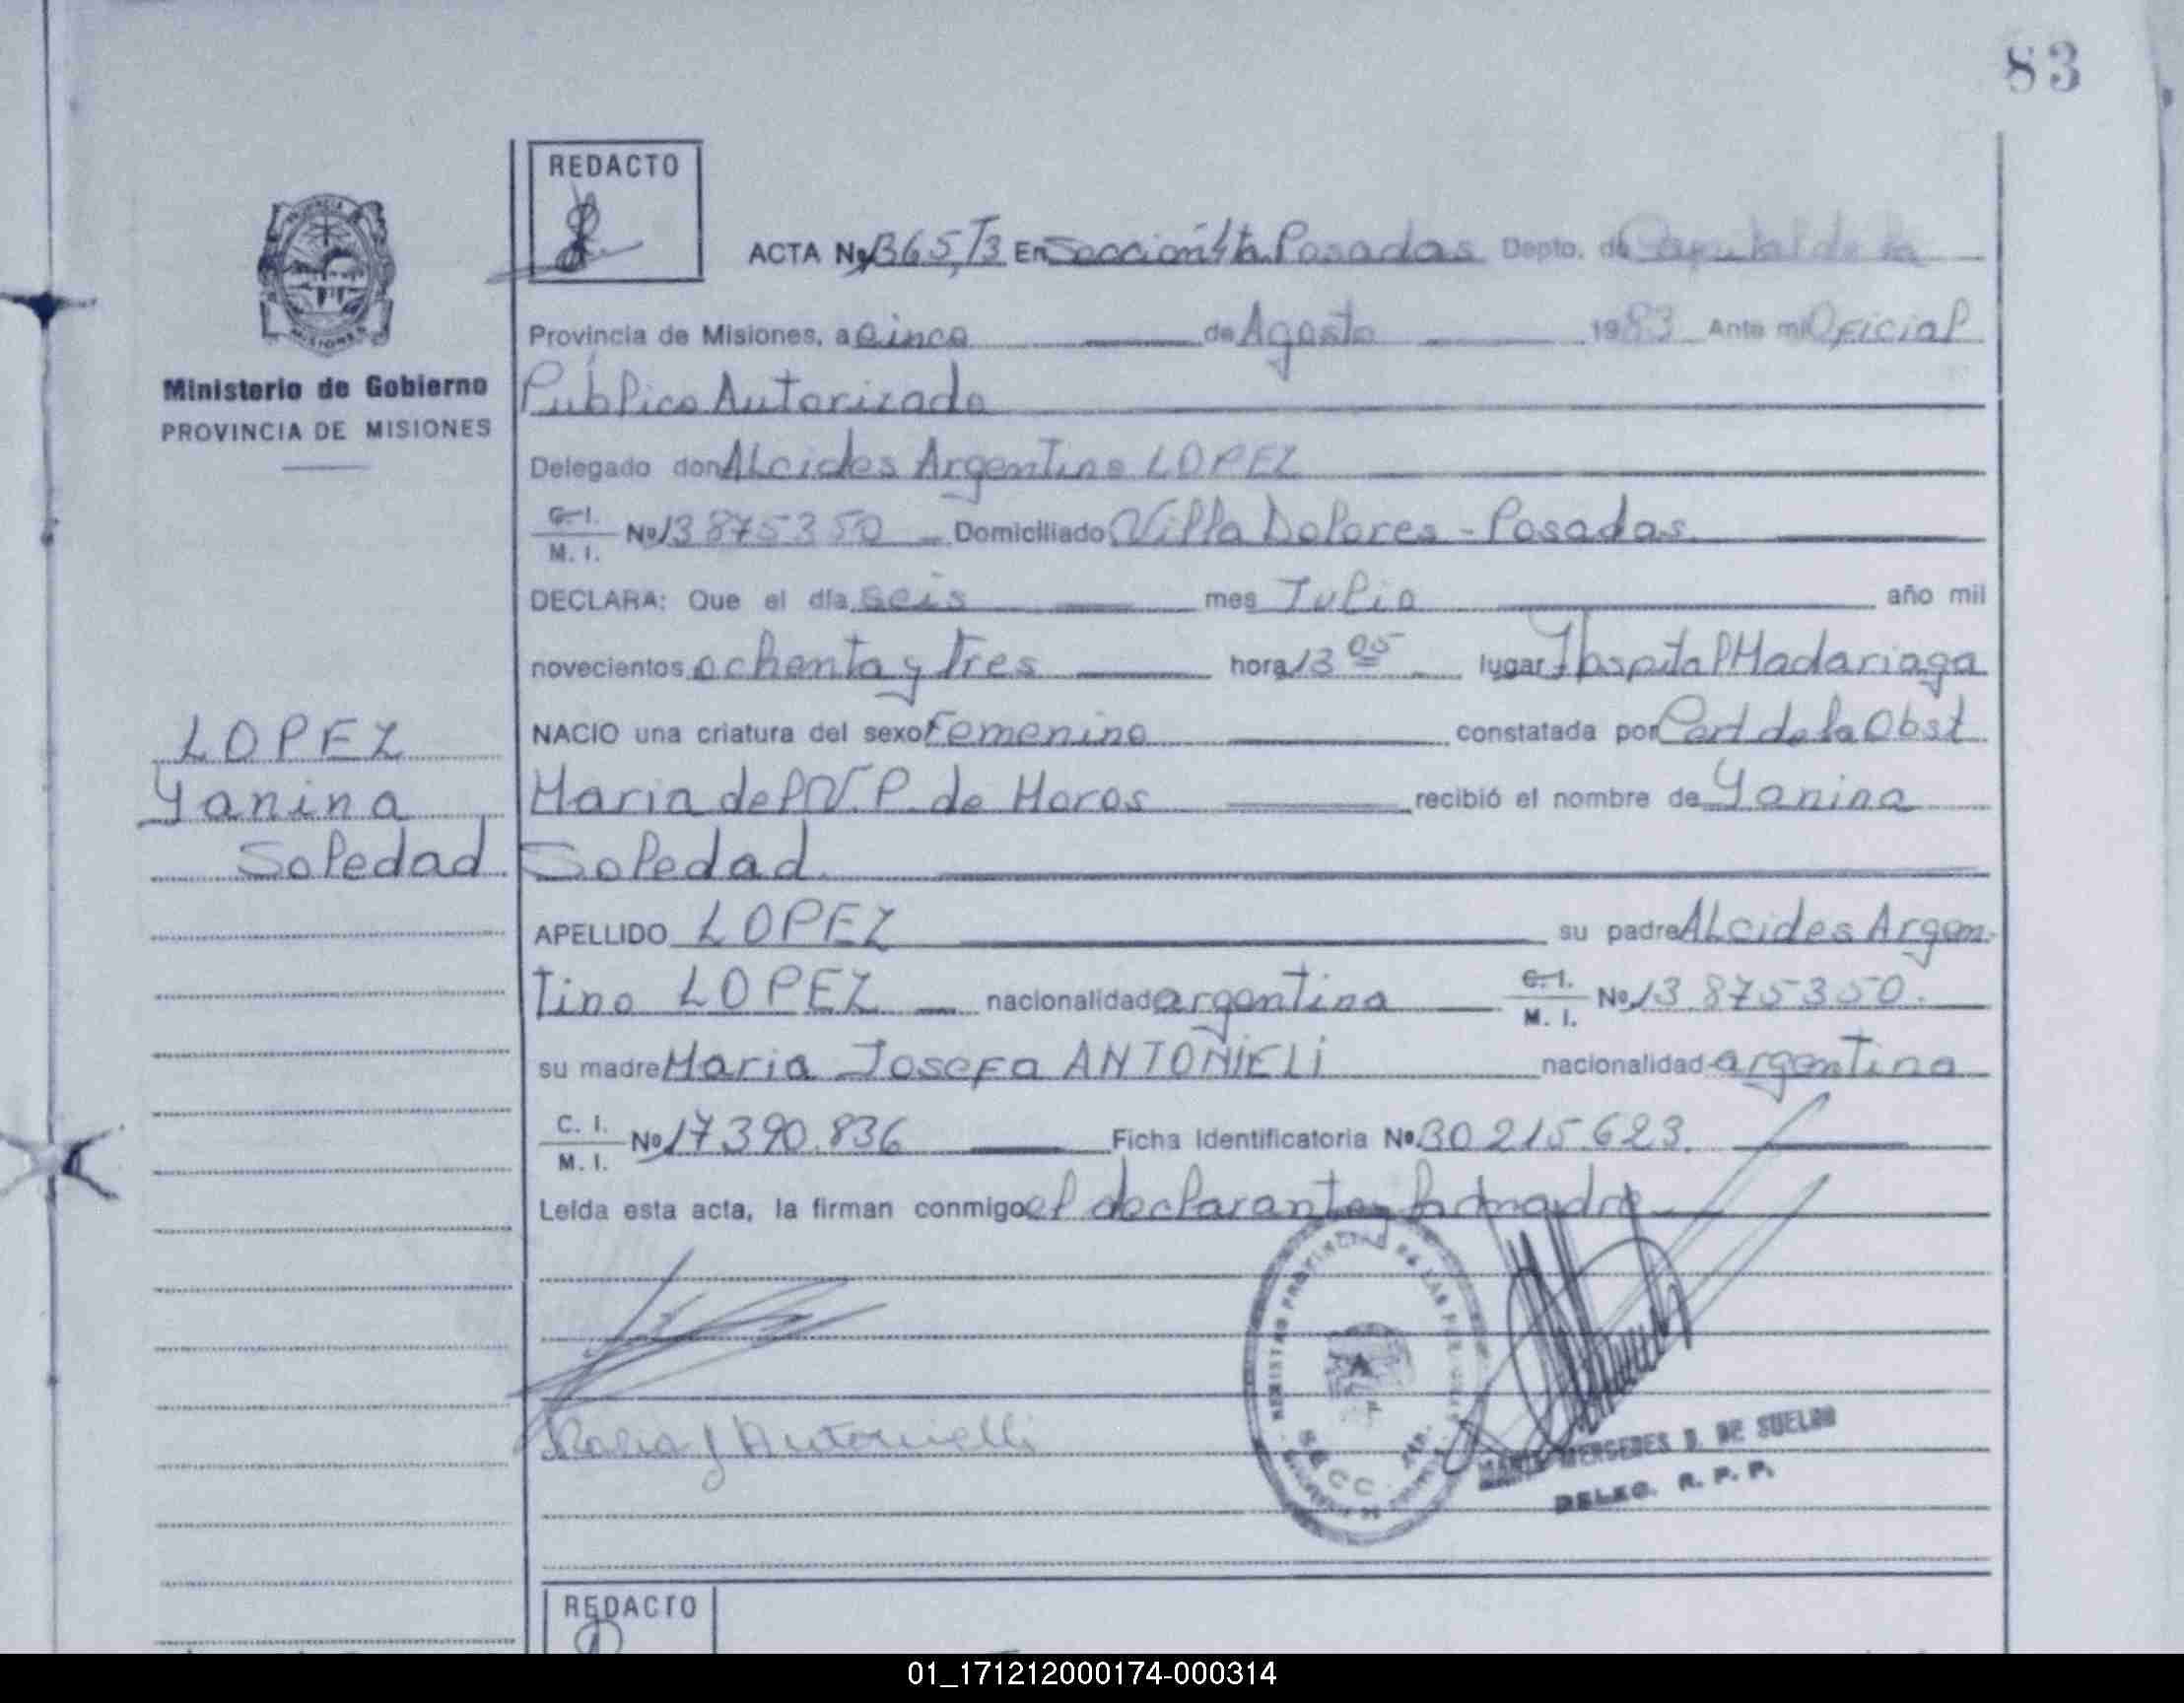 83
REDACTO
ACTA Nº 1365, T3 En Sección 4ta. Posadas Depto. de Capital de la
Provincia de Misiones, a cinco de Agosto 1983 Ante mi Oficial
Ministerio de Gobierno
Público Autorizado
PROVINCIA DE MISIONES
Delegado don ALcides Argentino LOPEZ
C. I.
M. I. Nº 13875350 Domiciliado Villa Dolores - Posadas.
DECLARA: Que el día seis mes Julio año mil
novecientos ochenta y Tres hora 13 05 lugar Hospital Madariaga
LOPEZ
NACIO una criatura del sexo Femenino constatada por Cert de la Obst
Yanina
Maria del V. P. de Haros recibió el nombre de Yanina
Soledad
Soledad.
APELLIDO LOPEZ su padre ALcides Argen-
tino LOPEZ nacionalidad argentina C. I. M. I. Nº 13.875350.
su madre Maria Josefa ANTOÑiELLi nacionalidad argentina
C. I.
M. I. Nº 17390.836 Ficha Identificatoria Nº 30 215.623.
Leída esta acta, la firman conmigo el declarante y la madre
Maria J Antonielli
SECC.
MARIA MERCEDES D. DE SUELDO
DELEG. R. P. P.
REDACTO
01_171212000174-000314